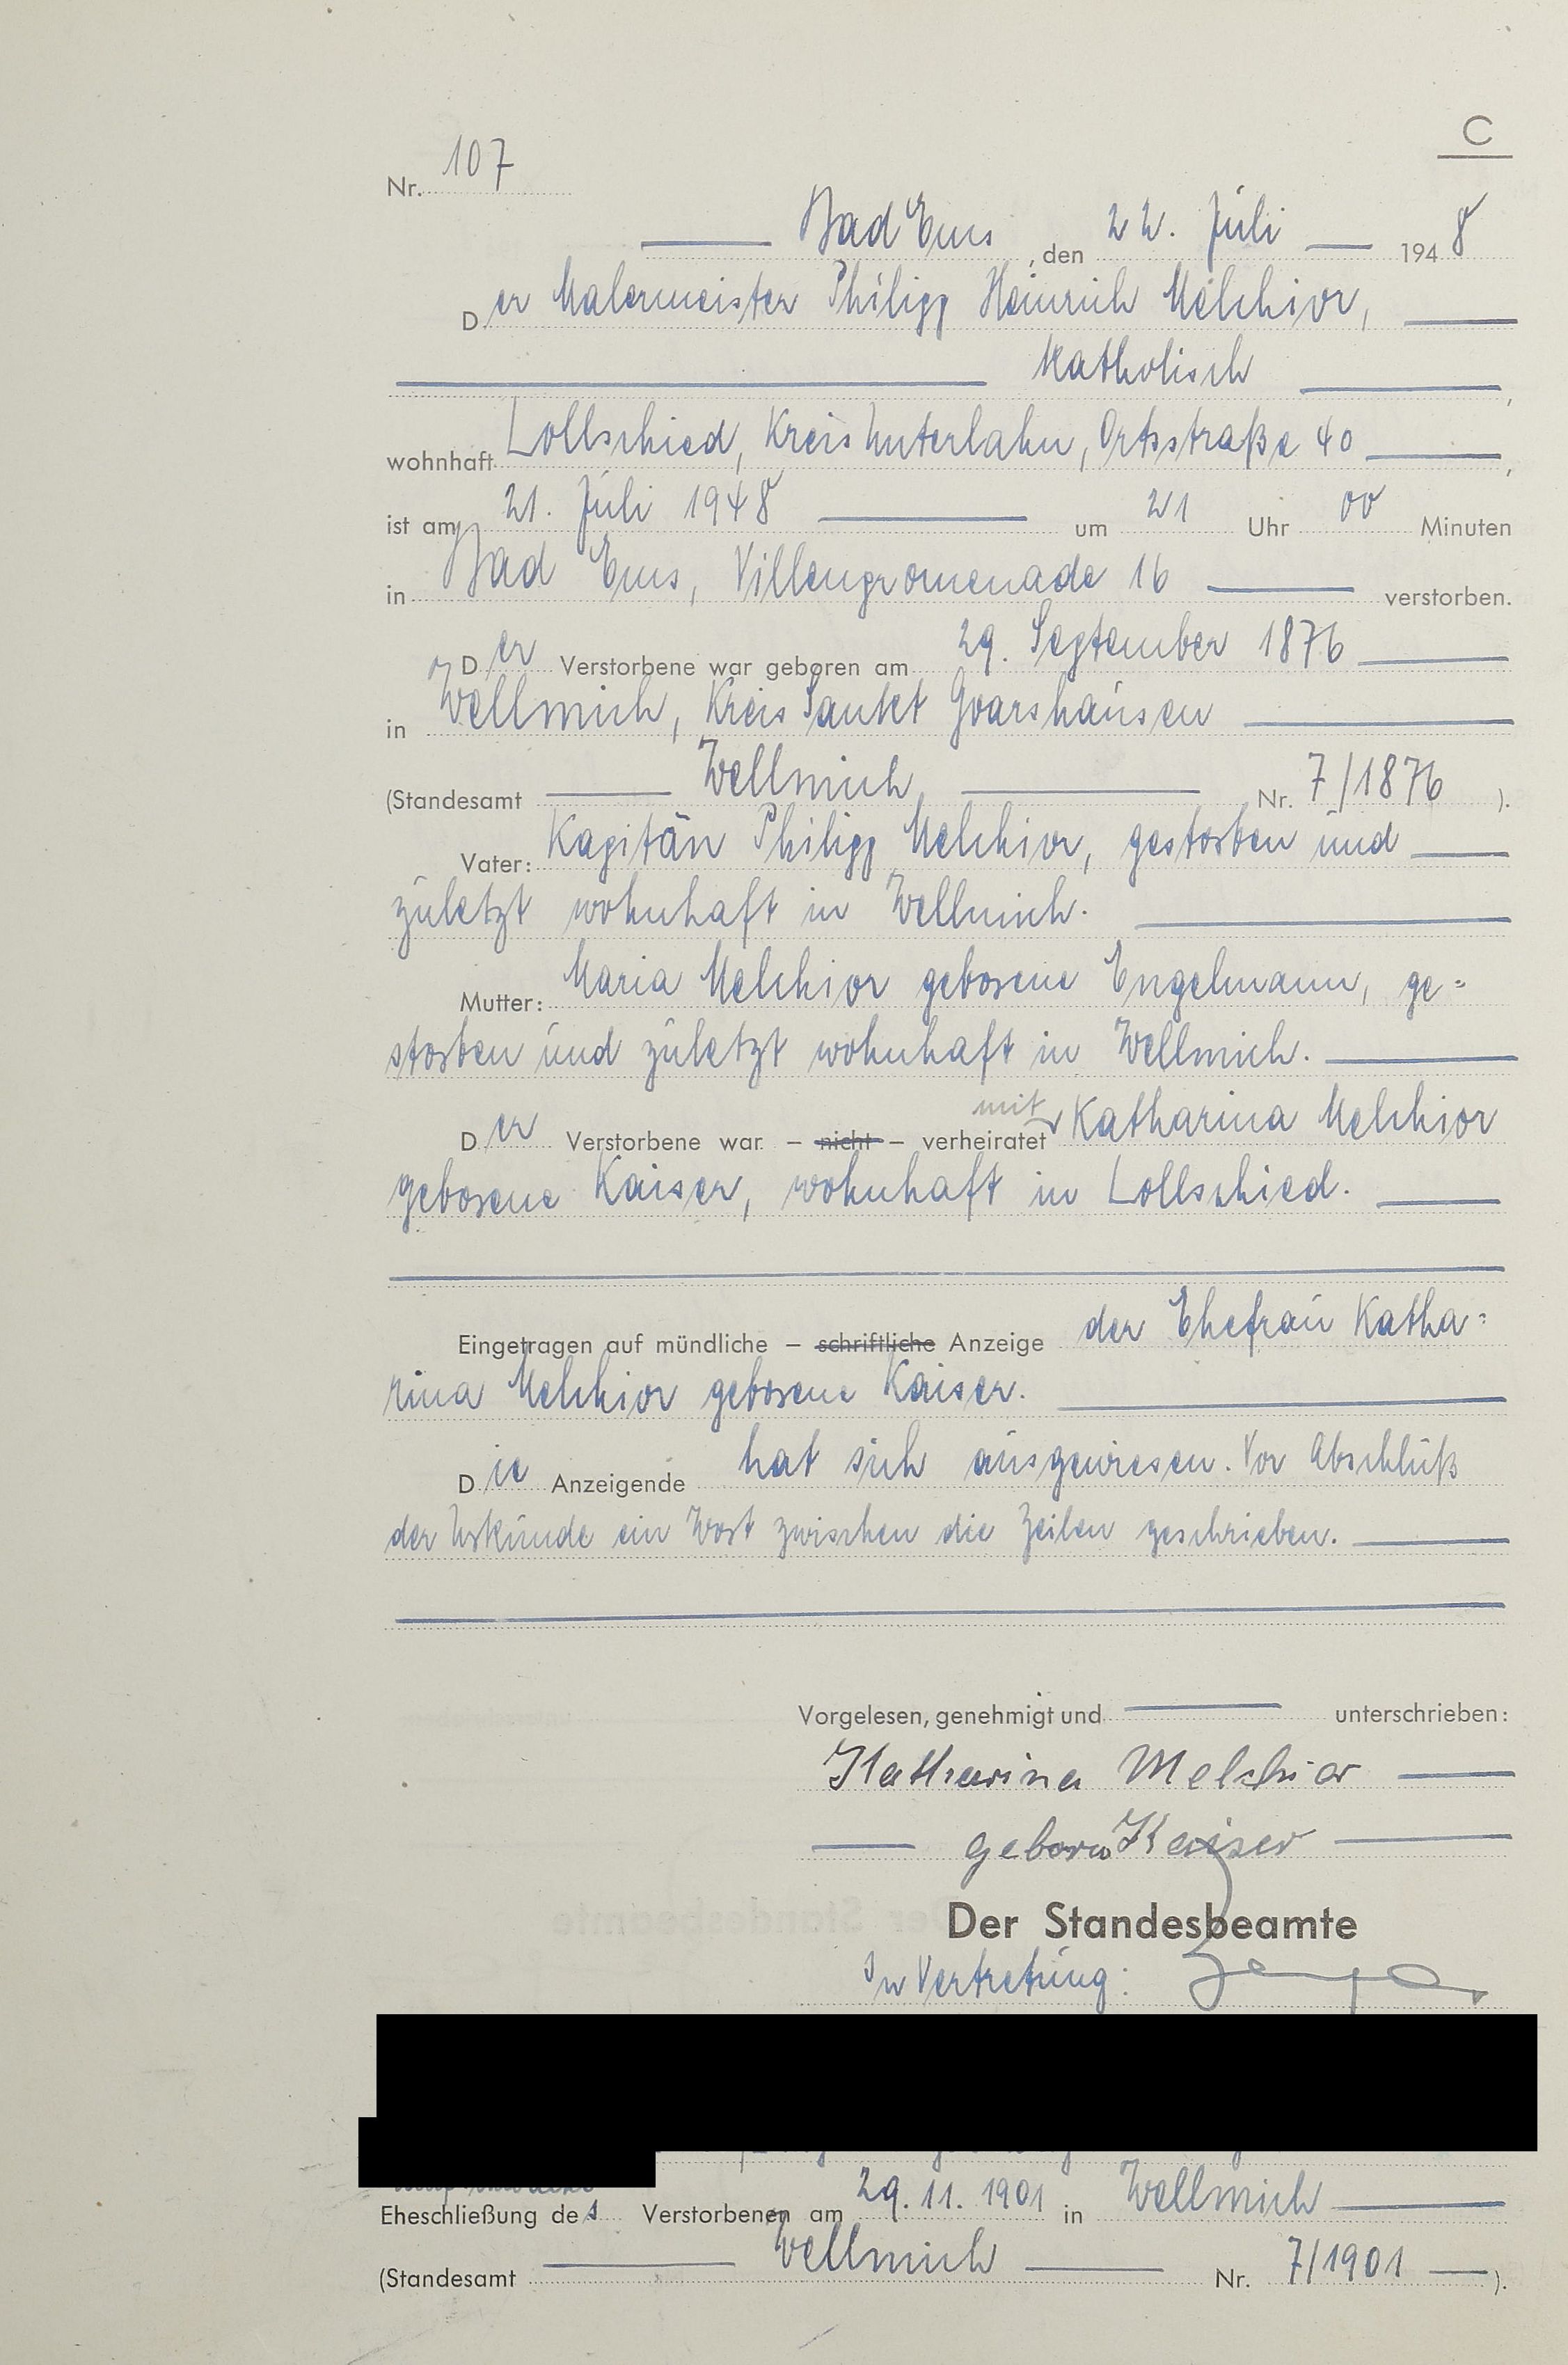 C
Nr. 107
Bad Ems, den 22. Juli 1948
Der Malermeister Philipp Heinrich Melchior,
katholisch,
wohnhaft Lollschied, Kreis Unterlahn, Ortsstraße 40,
ist am 21. Juli 1948 um 21 Uhr 00 Minuten
in Bad Ems, Villenpromenade 16 verstorben.
Der Verstorbene war geboren am 29. September 1876
in Wellmich, Kreis Sankt Goarshausen
(Standesamt Wellmich Nr. 7/1876 ).
Vater: Kapitän Philipp Melchior, gestorben und
zuletzt wohnhaft in Wellmich.
Mutter: Maria Melchior geborene Engelmann, ge=
storben und zuletzt wohnhaft in Wellmich.
mit
Der Verstorbene war – nicht – verheiratet Katharina Melchior
geborene Kaiser, wohnhaft in Lollschied.
Eingetragen auf mündliche – schriftliche Anzeige der Ehefrau Katha=
rina Melchior geborene Kaiser.
Die Anzeigende hat sich ausgewiesen. Vor Abschluß
der Urkunde ein Wort zwischen die Zeilen geschrieben.
Vorgelesen, genehmigt und unterschrieben:
Katharina Melchior
Kaiser
Der Standesbeamte
In Vertretung:
Eheschließung des Verstorbenen am 29.11.1901 in Wellmich
(Standesamt Wellmich Nr. 7/1901 ).